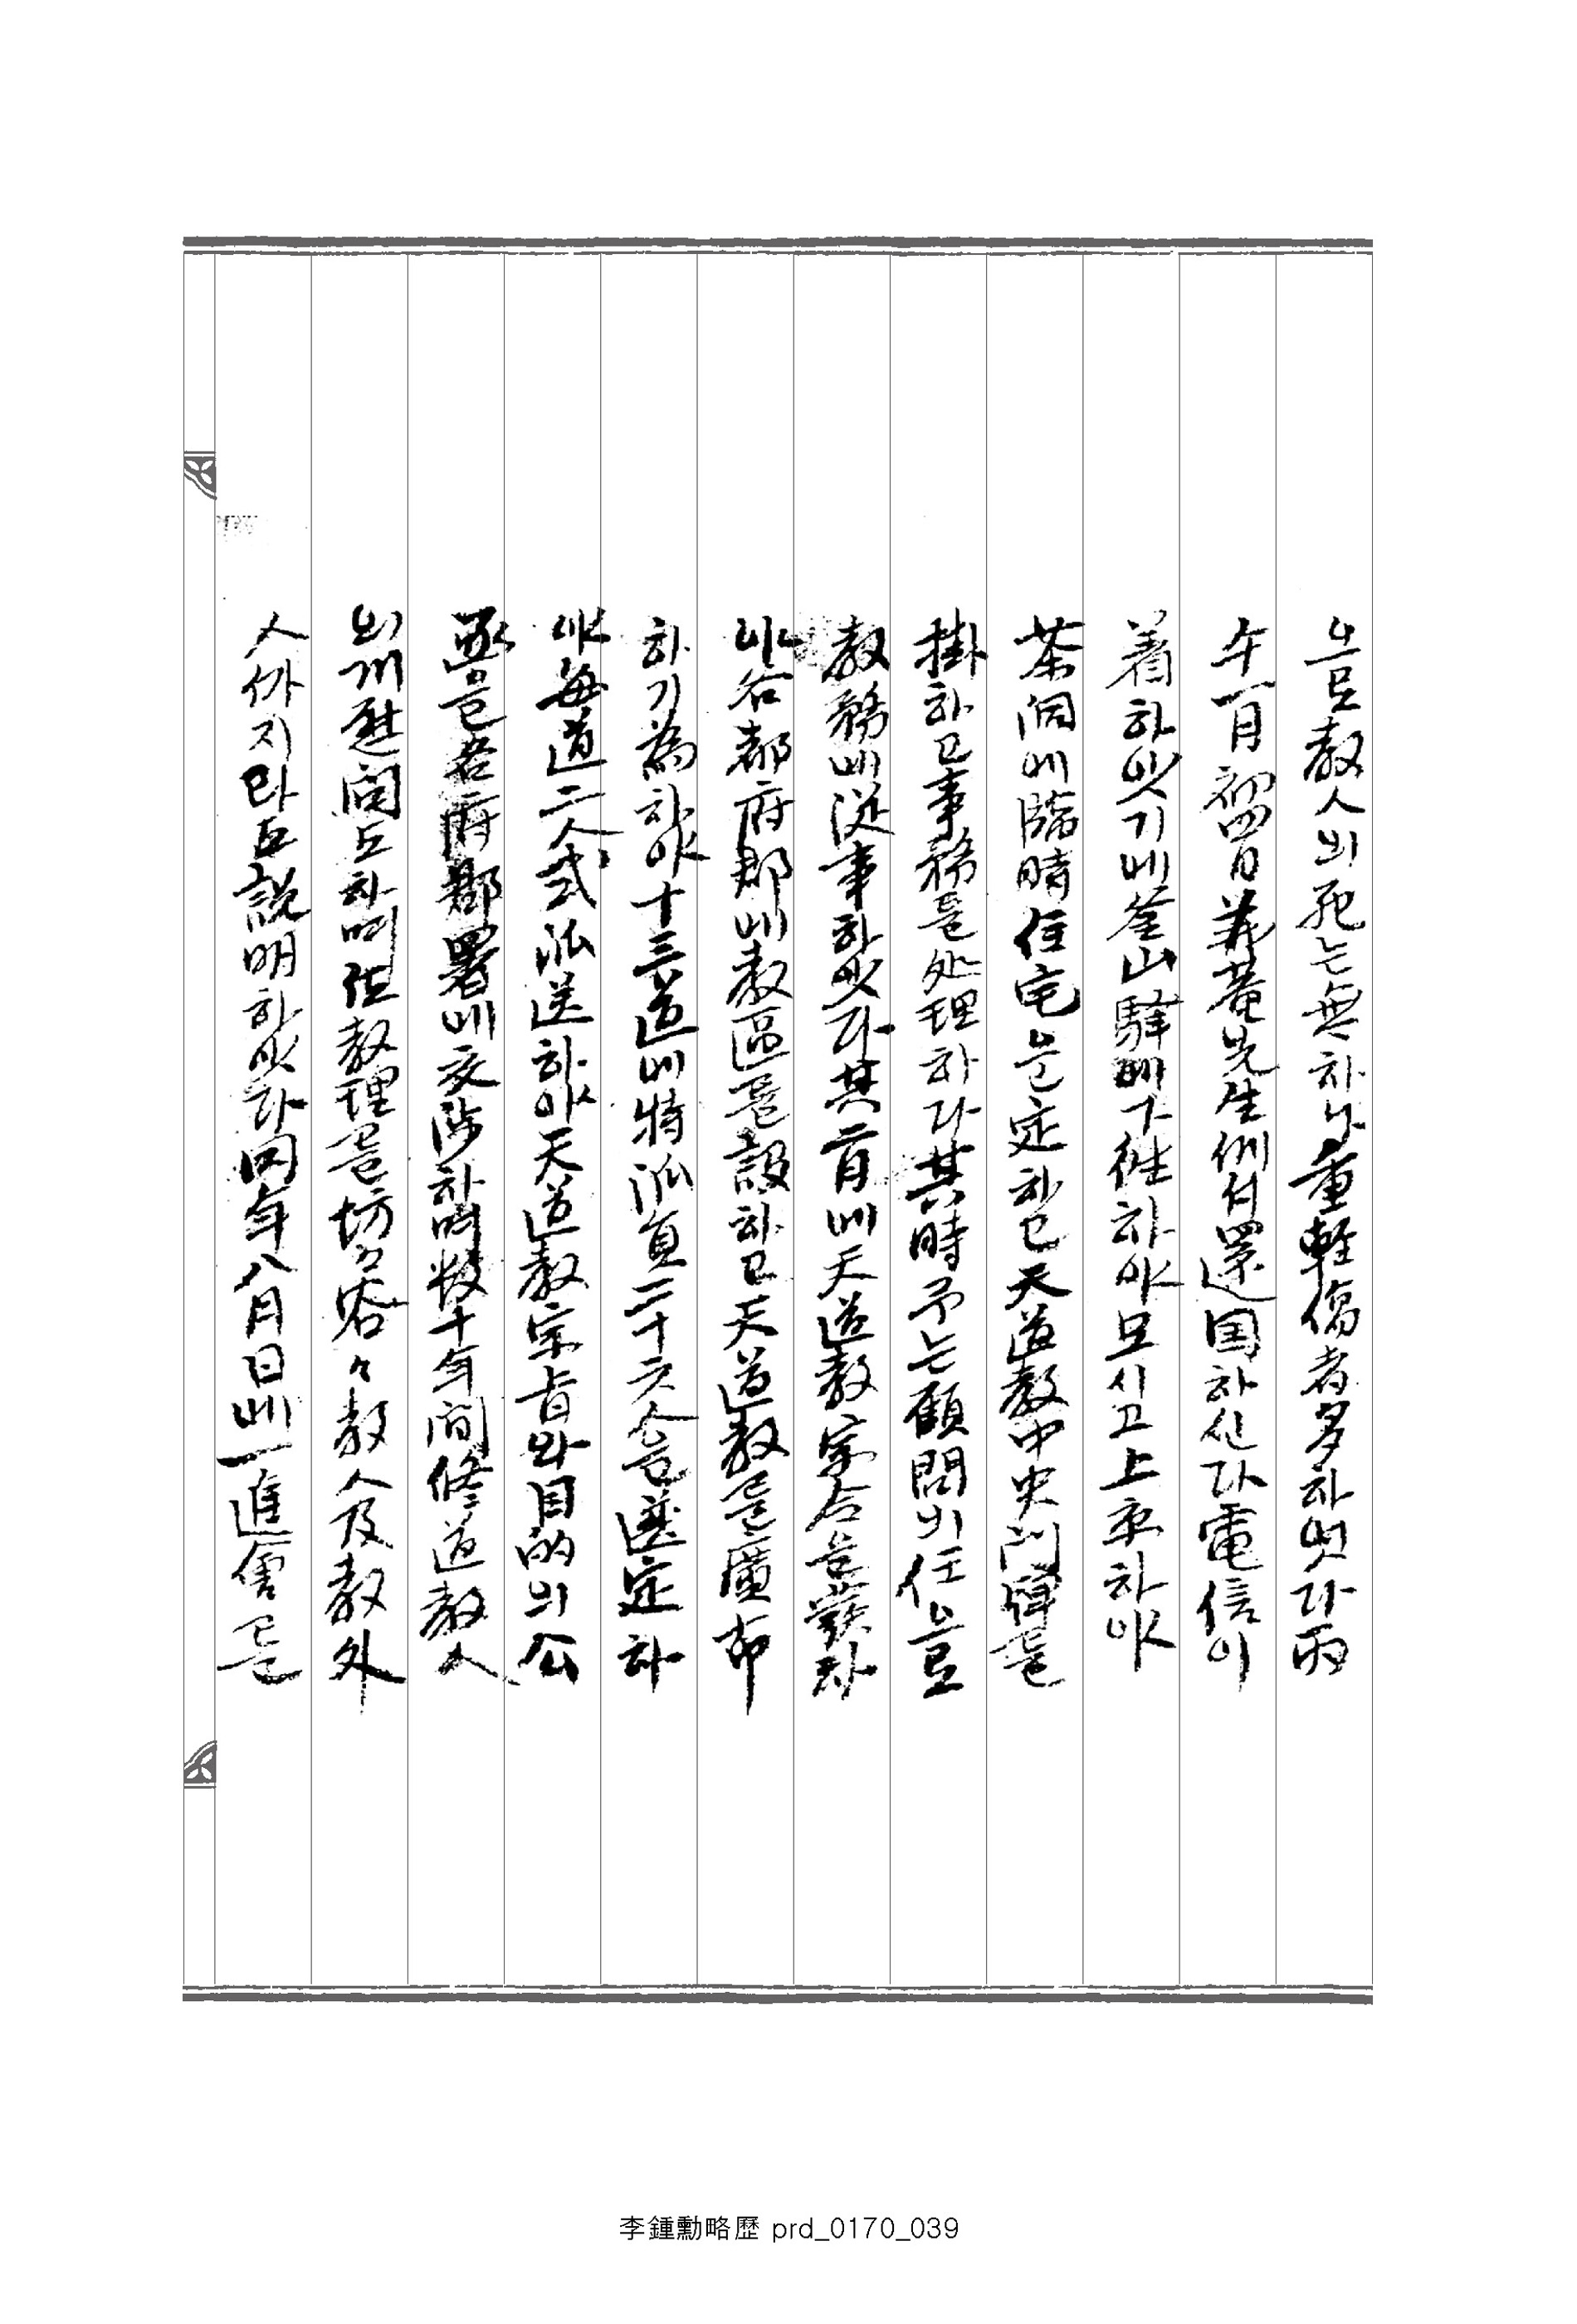 으로 敎人의 死는 無하나 重輕傷者 多하엿다 丙
午一月初四日 義菴先生侧付 還国하신다 電信이
着하얏기에 釜山驛에 下徃하야 모시고 上来하야
茶洞에 臨時住宅을 定하고 天道敎中央門牌를
掛하고 事務를 处理하다 其時 予는 顧問의 任으로
敎務에 從事하얏다 其二月에 天道敎宗令을 發하
야 各都府郡에 敎區를 設하고 天道敎를 廣布
하기 爲하야 十三道에 特派員 二十六人을 選定하
야 每道 二人式 派送하야 天道敎宗旨와 目的의 公
函을 各府郡署에 交涉하며 数十年間 修道敎人
의게 慰問도 하며 但 敎理를 坊々谷々 敎人及敎外
人까지라도 說明하얏다 同年八月日에 一進會를
李鍾勳略歷 prd_0170_039